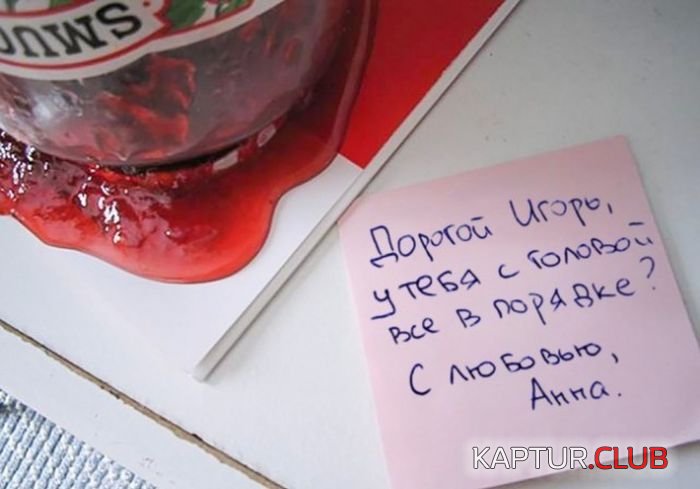 SMUC
Дорогой Игорь,
у тебя с головой
все в порядке?
С любовью,
Анна.
KAPTUR.CLUB